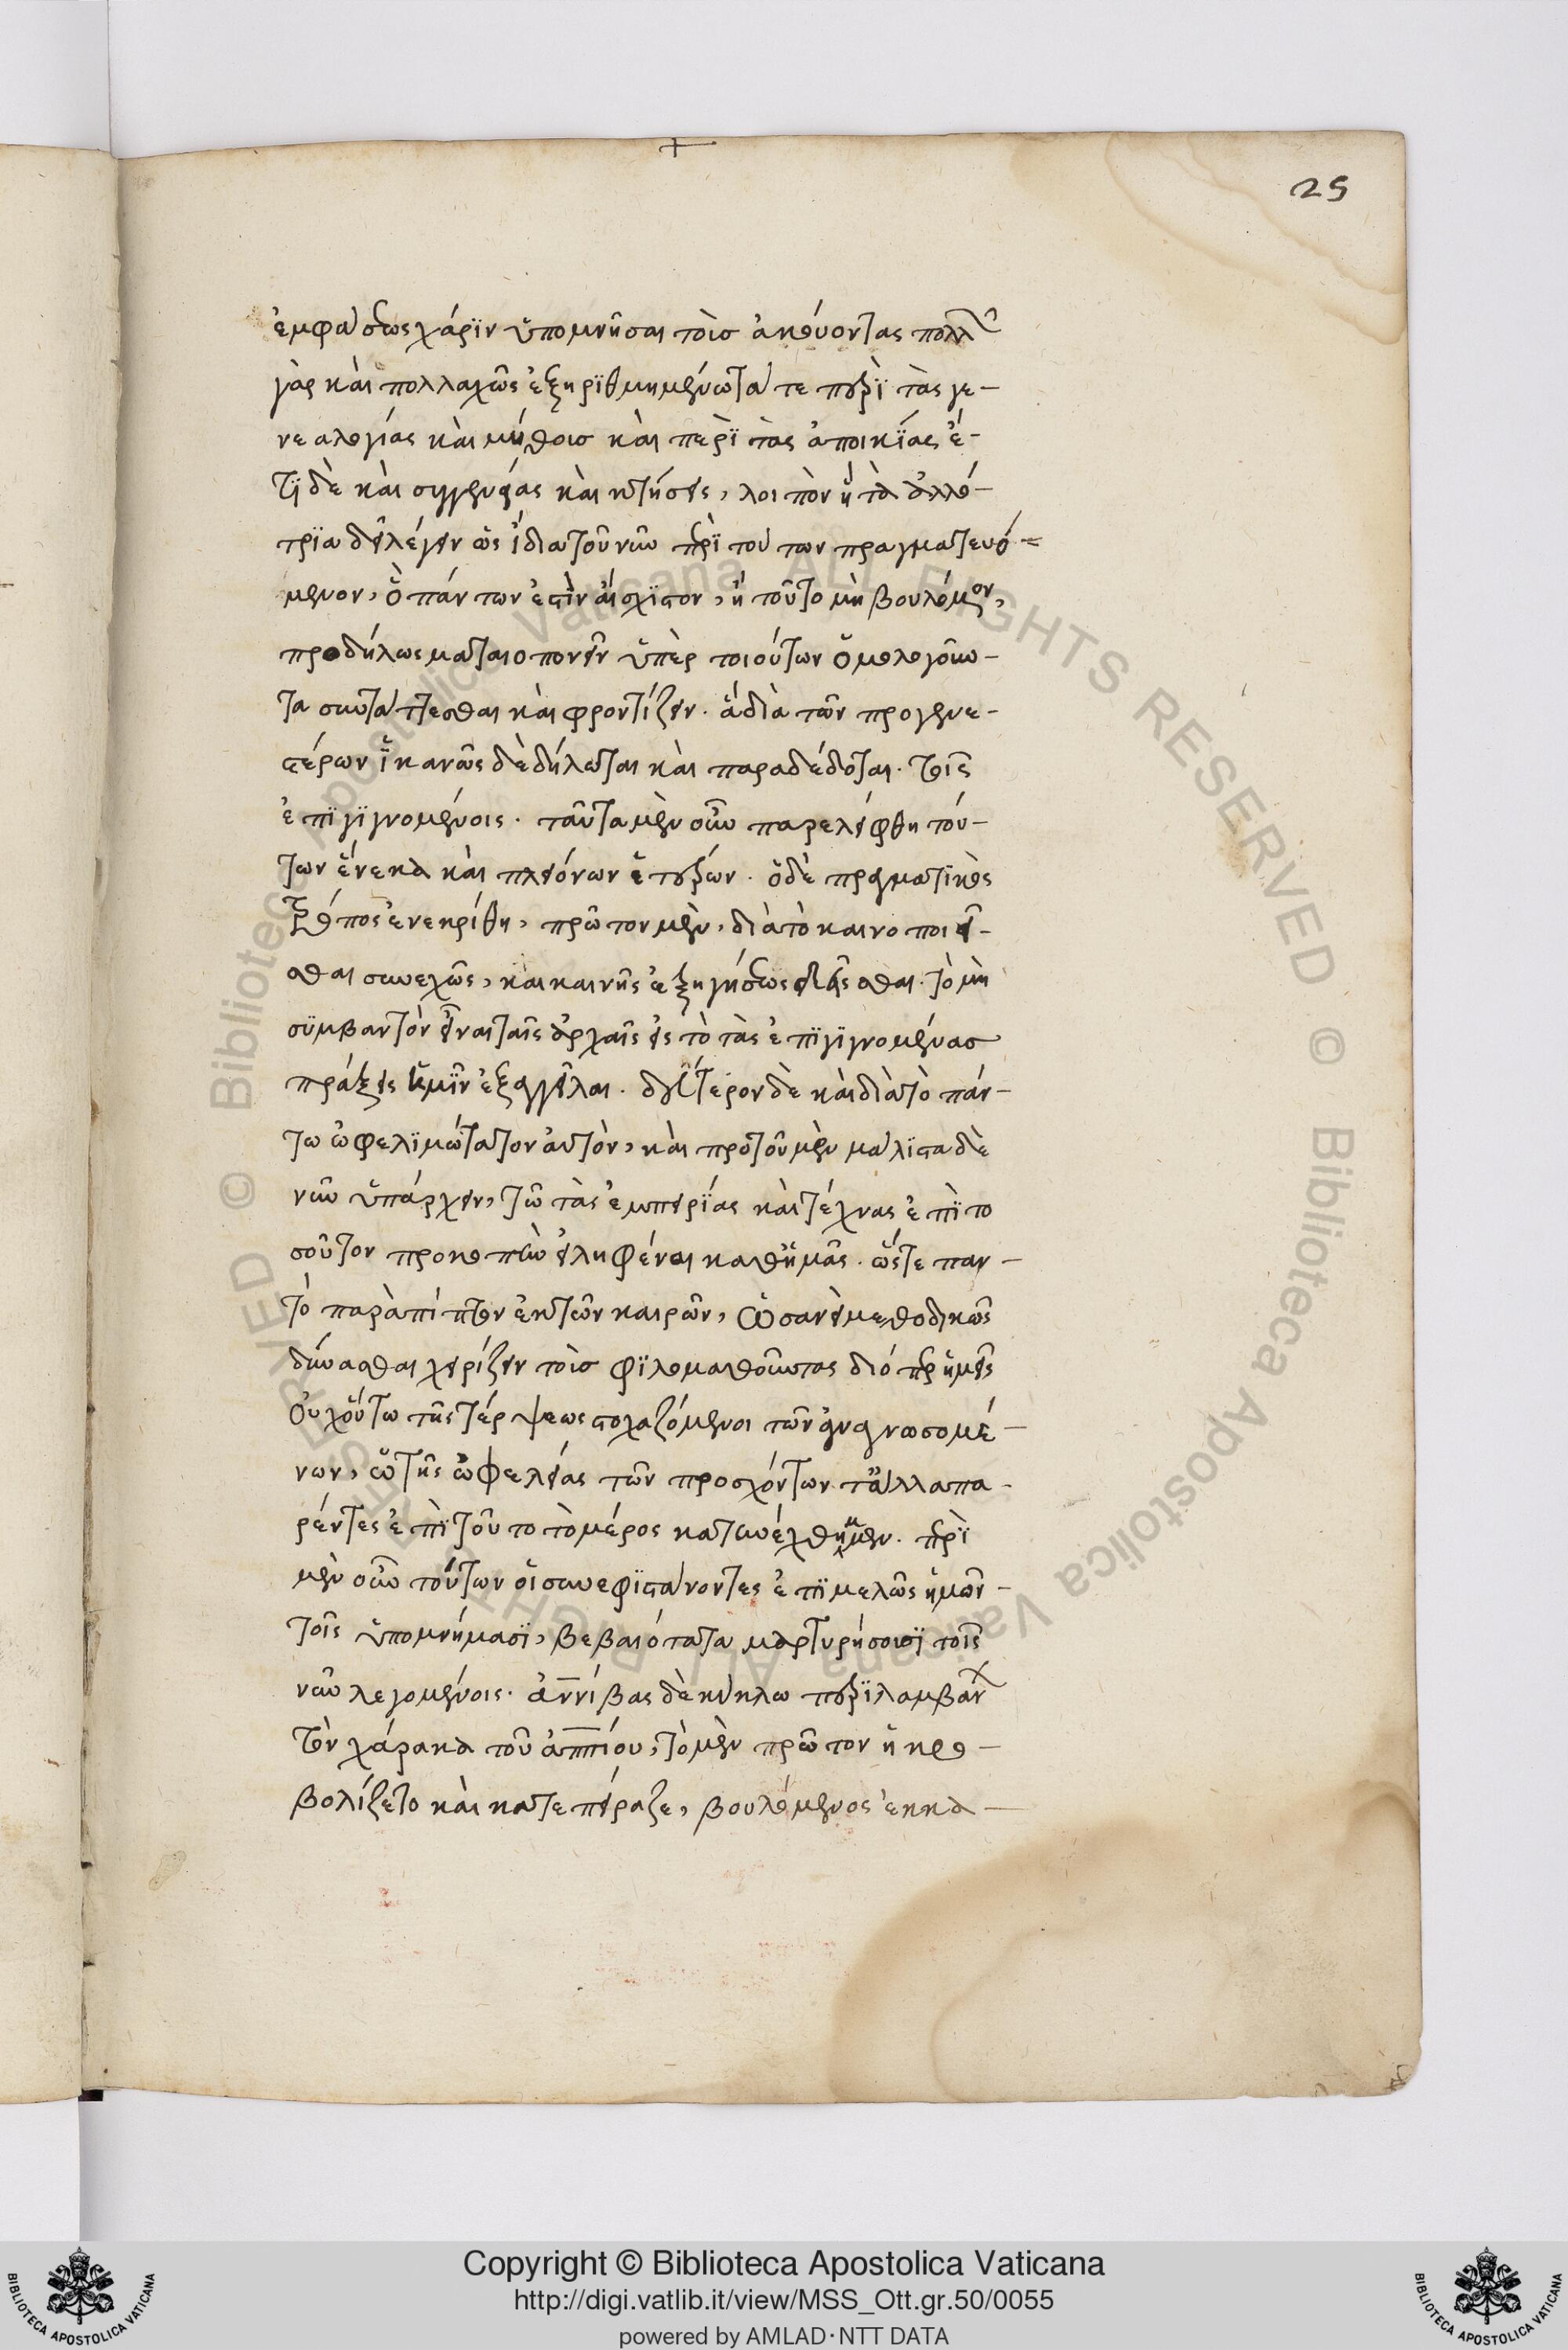 25
ἐμφάσεως χάρϊν ὑπομνῆσαι τοὶσ ἀκούοντας πολλῶν
γὰρ καὶ πολλαχῶς ἐξηρϊθμημένων τά τε περὶ τὰς γε-
νεαλογίας καὶ μύθοισ καὶ περὶ τὰς ἀποικΐας ἔ-
τϊ δὲ καὶ συγγενείας καὶ κτήσεις, λοιπὸν ἢ τὰ ἀλλό-
τρϊα δεῖ λέγειν ὡς ἴδια τοῦ νῦν περὶ τούτων πραγματευό-
μενον, ὃ πάντων ἐστὶν αἴσχϊστον, ἢ τοῦτο μὴ βουλόμενον,
προδήλως ματαιοπονεῖν ὑπὲρ τοιούτων ὁμολογοῦν-
τα συντάττεσθαι καὶ φροντίζειν. ἃ διὰ τῶν προγενε-
στέρων ἱκανῶς δεδήλωται καὶ παραδέδοται. τοῖς
ἐπϊγϊγνομένοις. ταῦτα μὲν οὖν παρελείφθη τού-
των ἕνεκα καὶ πλειόνων ἑτέρων. ὁ δὲ πραγματικὸς
τρόπος ἐνεκρίθη, πρῶτον μὲν, διὰ τὸ καινοποιεῖ-
σθαι συνεχῶς, καὶ καινῆς ἐξηγήσεως δεῖσθαι. τὸ μὴ
σϋμβαντὸν εἶναι ταῖς ἀρχαῖς εἰς τὸ τὰς ἐπϊγϊγνομένασ
πράξεις ἡμῖν ἐξαγγεῖλαι. δεύτερον δὲ καὶ διὰ τὸ πάν-
των ὠφελϊμώτατον αὐτὸν, καὶ πρὸ τοῦ μὲν μάλϊστα δὲ
νῦν ὑπάρχειν, τῶ τὰς ἐμπειρΐας καὶ τέχνας ἐπὶ το
σοῦτον προκοπὴν εἰληφέναι καθ ἡμᾶς. ὥστε παν-
τὸ παραπίπτον ἐκ τῶν καιρῶν, ὡσανεὶ μεθοδικῶς
δύνασθαι χειρίζειν τοὶσ φϊλομαθοῦντας διόπερ ἡμεῖς
οὐχ οὕτω τῆς τέρψεως στοχαζόμενοι τῶν ἀναγνωσομέ-
νων, ὡς τῆς ὠφελείας τῶν προσχόντων τἄλλα πα-
ρέντες ἐπὶ τοῦτο τὸ μέρος κατηνέχθημεν. περὶ
μὲν οὖν τούτων οἱ συνεφϊστάνοντες ἐπϊμελῶς ἡμῶν
τοῖς ὑπομνήμασϊ, βεβαιότατα μαρτυρήσουσϊ τοῖς
νῦν λεγομένοις. ἀννίβας δὲ κύκλω περϊλαμβάνων
τὸν χάρακα τοῦ ἀππίου, τὸ μὲν πρῶτον ἠκρο-
βολίζετο καὶ κατεπείραζε, βουλόμενος ἐκκα-
Copyright © Biblioteca Apostolica Vaticana
http://digi.vatlib.it/view/MSS_Ott.gr.50/0055
powered by AMLAD·NTT DATA